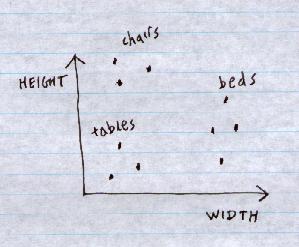 chairs
HEIGHT
beds
tables
WIDTH